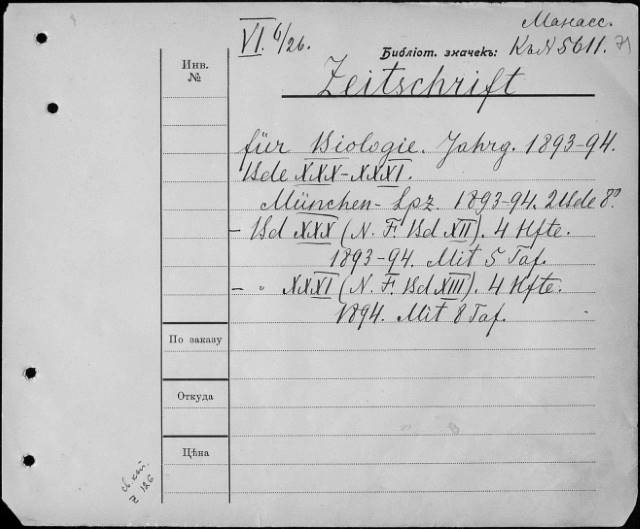 Манасс.
VI. 6/26.
Библіот. значекъ: К.N 5611. 71
Инв.
№
Zeitschrift
für Biologie. Jahrg. 1893-94.
Bde XXX-XXXI.
München-Lpz. 1893-94. 2 Bde 8º
- Bd XXX (N. F. Bd XII). 4 Hfte.
1893-94. Mit 5 Taf.
- " XXXI (N. F. Bd XIII). 4 Hfte.
1894. Mit 8 Taf.
По заказу
Откуда
Цѣна
z 126